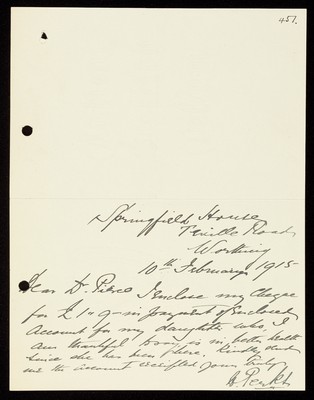 451.
Springfield House
Road
Working
10th February 1915
Dear Dr. Pierce I enclose my Cheque
for £1-9- in payment of enclosed
account for my daughter who, I
am thankful to say, is in better health
since she has been there. Kindly send
me the account receipted yours truly